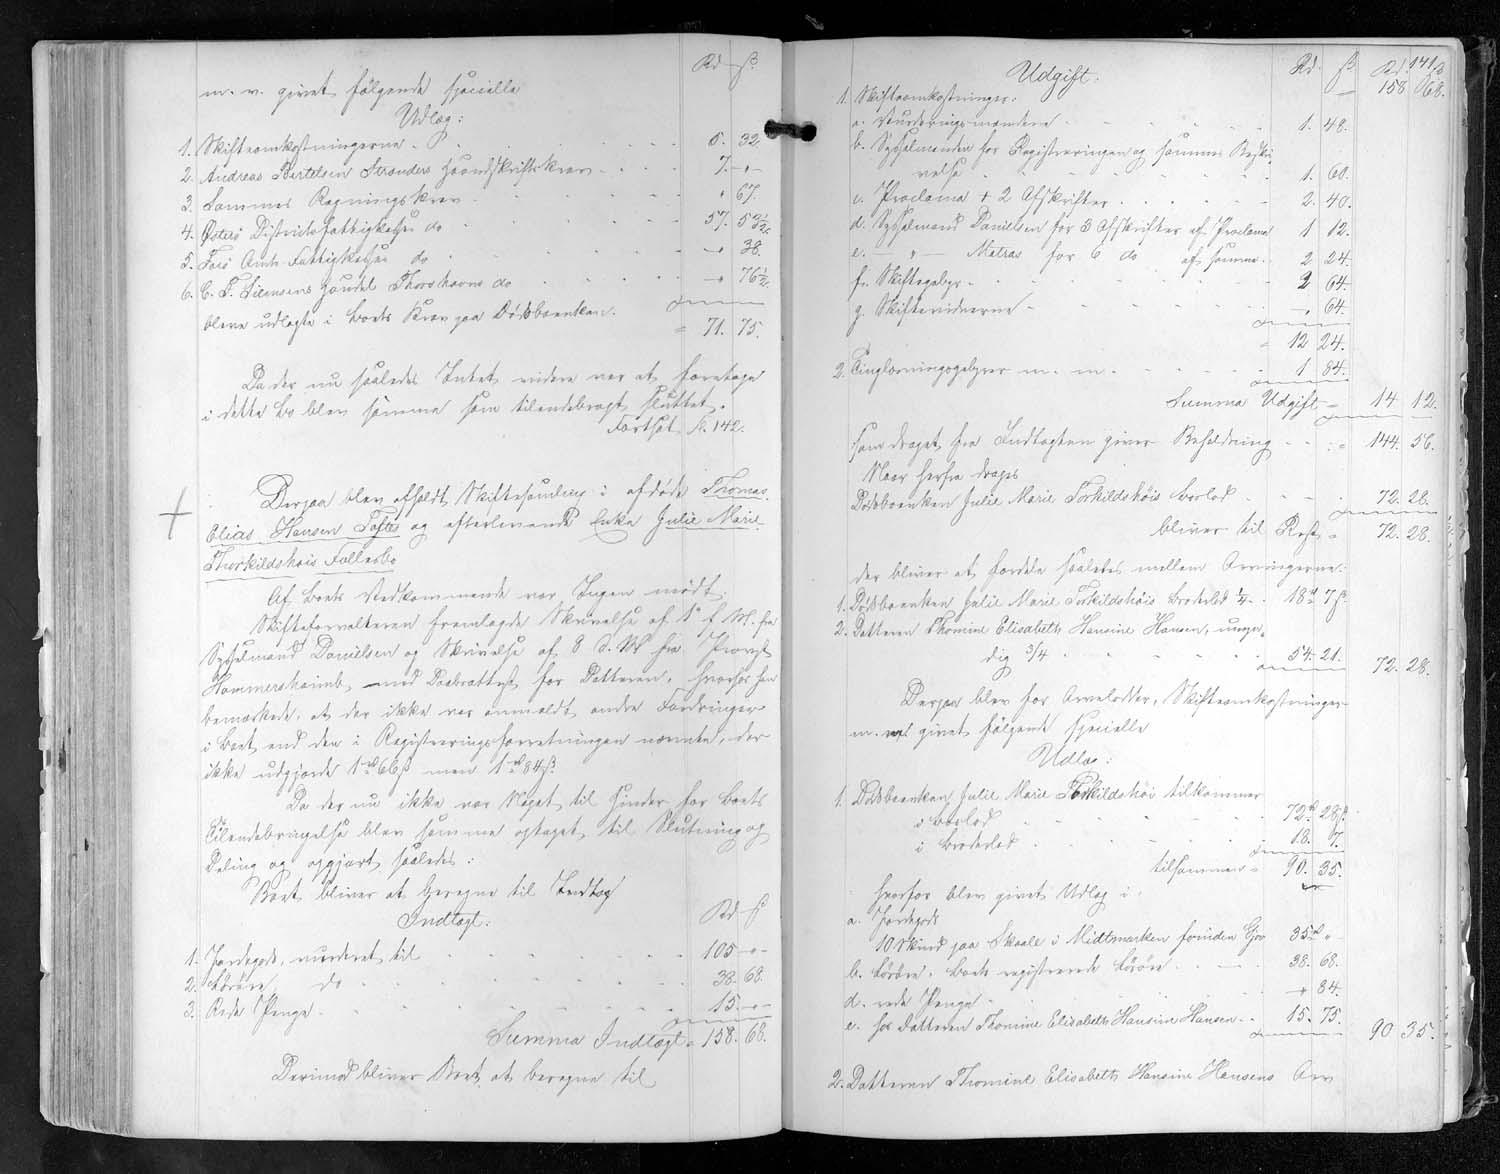 Rd. ß.
m. v. givet følgende specielle
Udlæg:
1. Skifteomkostningerne - 5. 32.
2. Andreas Bertelsen Stranders Haandskriftskrav 7. -"-
3. Sammes Regningskrav " 67.
4. Østerø Districtsfattigkasses do 57. 5 1/2
5. Færø Amts Fattigkasses do " 38.
6. C. F. Siemsens Handel Thorshavns do " 76 1/2
bleve udlagte i Boets Krav paa Dødsboenken. = 71. 75.
Da der nu saaledes Intet videre var at foretage
i dette Bo blev samme som tilendebragt sluttet.
Fortsat S. 142.
Derpaa blev afholdt Skiftesamling i afdøde Thomas
Elias Hansen Toftes og efterlevende Enke Julie Marie
Thorkildshøis Fællesbo
Af Boets Vedkommende var Ingen mødt
Skifteforvalteren fremlagde Skrivelse af 1' f. M. fra
Sysselmand Danielsen og Skrivelse af 8 d. M. fra Provst
Hammershaimb med Daabsattest for Datteren, hvorfor han
bemærkede, at der ikke var anmeldt andre Fordringer
i Boet end den i Registreringsforretningen nævnte, der
ikke udgjorde 1 rd 66 ß men 1 rd 84 ß.
Da der nu ikke var Noget til Hinder for Boets
Tilendebringelse blev samme optaget til Slutning og
Deling og opgjort saaledes:
Boet bliver at beregne til Indtægt
Indtægt: Rd ß
1. Jordegods, vurderet til 105 -"-
2. Løsøre, do 38. 68.
3. Rede Penge 15. -"-
Summa Indtægt = 158. 68.
Derimod bliver Boet at beregne til
141.
Udgift: Rd. ß Rd. ß
158 68.
1. Skifteomkostninger:
a. Vurderingsmændene 1. 48.
b. Sysselmanden for Registreringen og sammes Beskri-
velse 1. 60.
c. Proclama + 2 Afskrifter 2. 40.
d. Sysselmand Danielsen for 3 Afskrifter af Proclama 1 12.
e. — " — Matras for 6 do af samme 2 24.
f. Skiftegebyr 2 64.
g. Skiftevidnerne " 64.
= 12 24.
2. Tinglæsningsgebyrer m. m. 1 84.
Summa Udgift = 14 12.
som draget fra Indtægten giver Beholdning = 144. 56.
Naar herfra drages
Dødsboenken Julie Marie Torkildshøis Boslod 72. 28.
bliver til Rest = 72. 28.
der bliver at fordele saaledes mellem Arvingerne:
1. Dødsboenken Julie Marie Torkildshøis Broderlod 1/4 18 rd 7 ß
2. Datteren Thomine Elisabeth Hansine Hansen, umyn-
dig 3/4 54. 21. 72. 28.
Derpaa blev for Arvelodder, Skifteomkostninger
m. v. givet følgende specielle
Udlæg:
1. Dødsboenken Julie Marie Torkildshøi tilkommer
i Boslod 72 rd 28 ß
i Broderlod 18. 7.
tilsammen = 90. 35.
hvorfor blev givet Udlæg i:
a. Jordegods
10 Skind paa Skaale i Midtmarken foruden Gjov 35 rd "
b. Løsøre. Boets registrerede Løsøre 38. 68.
d. rede Penge " 84.
e. hos Datteren Thomine Elisabeth Hansine Hansen 15. 75. 90 35.
2. Datteren Thomine Elisabeth Hansine Hansens Arv